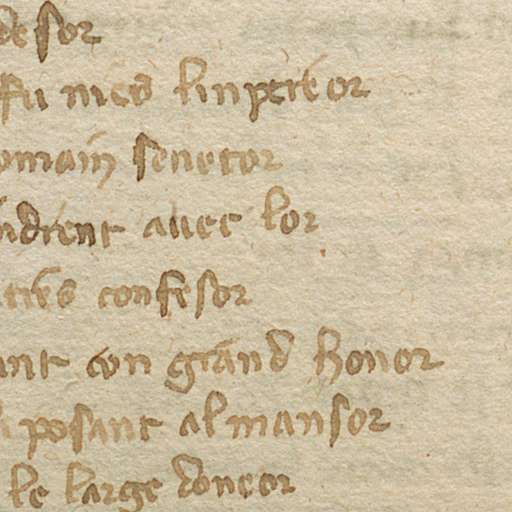 de sor
fu nies linpereor
omain senetor
ndrent avec lor
confesor
ant con grand honor
posant almansor
le large doneor